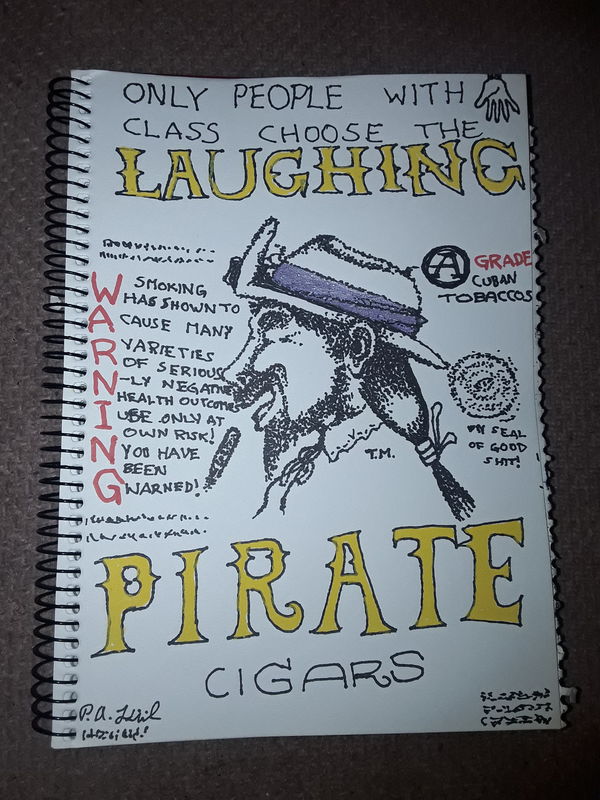 ONLY PEOPLE WITH
CLASS CHOOSE THE
LAUGHING
WARNING
SMOKING
HAS SHOWN TO
CAUSE MANY
VARIETIES
OF SERIOUS
-LY NEGATIVE
HEALTH OUTCOME
USE ONLY AT
OWN RISK!
YOU HAVE
BEEN
WARNED!
A GRADE
CUBAN
TOBACCOS
SEAL
OF GOOD
SHIT!
T.M.
PIRATE
CIGARS
P.A.